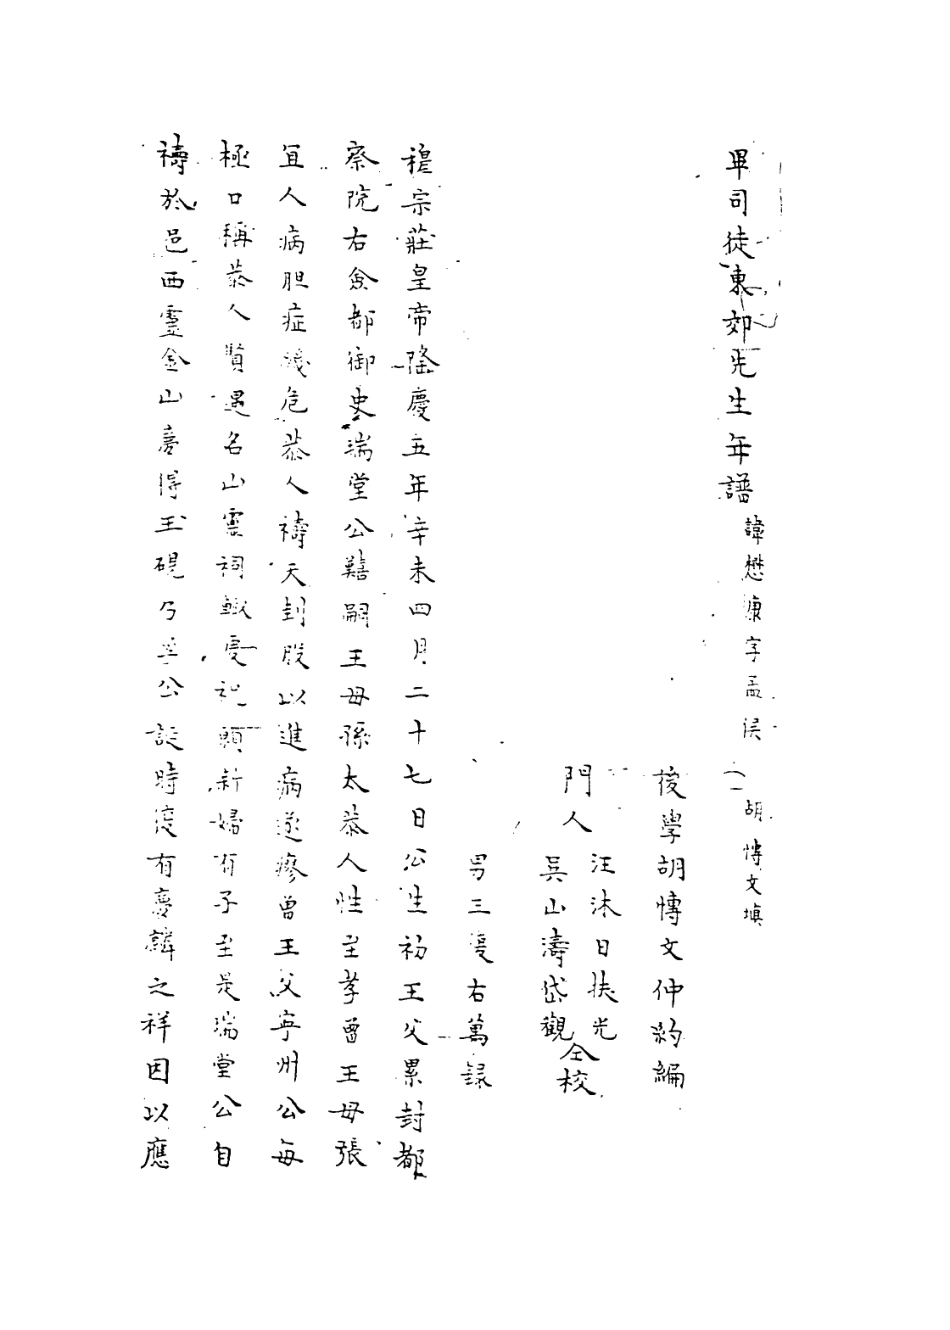 畢司徒東郊先生年譜 諱懋康字孟侯 (一 胡博文填
後學胡博文仲約編
門人 汪沐日扶光
吳山濤岱觀 仝校
男三復右萬錄
穆宗莊皇帝隆慶五年辛未四月二十七日公生初王父累封都
察院右僉都御史瑞堂公艱嗣王母孫太恭人性至孝曾王母張
宜人病胆症濒危恭人禱天刲股以進病遂瘳曾王父寧州公每
極口稱恭人賢遇名山靈祠輙虔祝願新婦有子至是瑞堂公自
禱於邑西靈金山夢得玉硯乃其公誕時復有麐麟之祥因以應